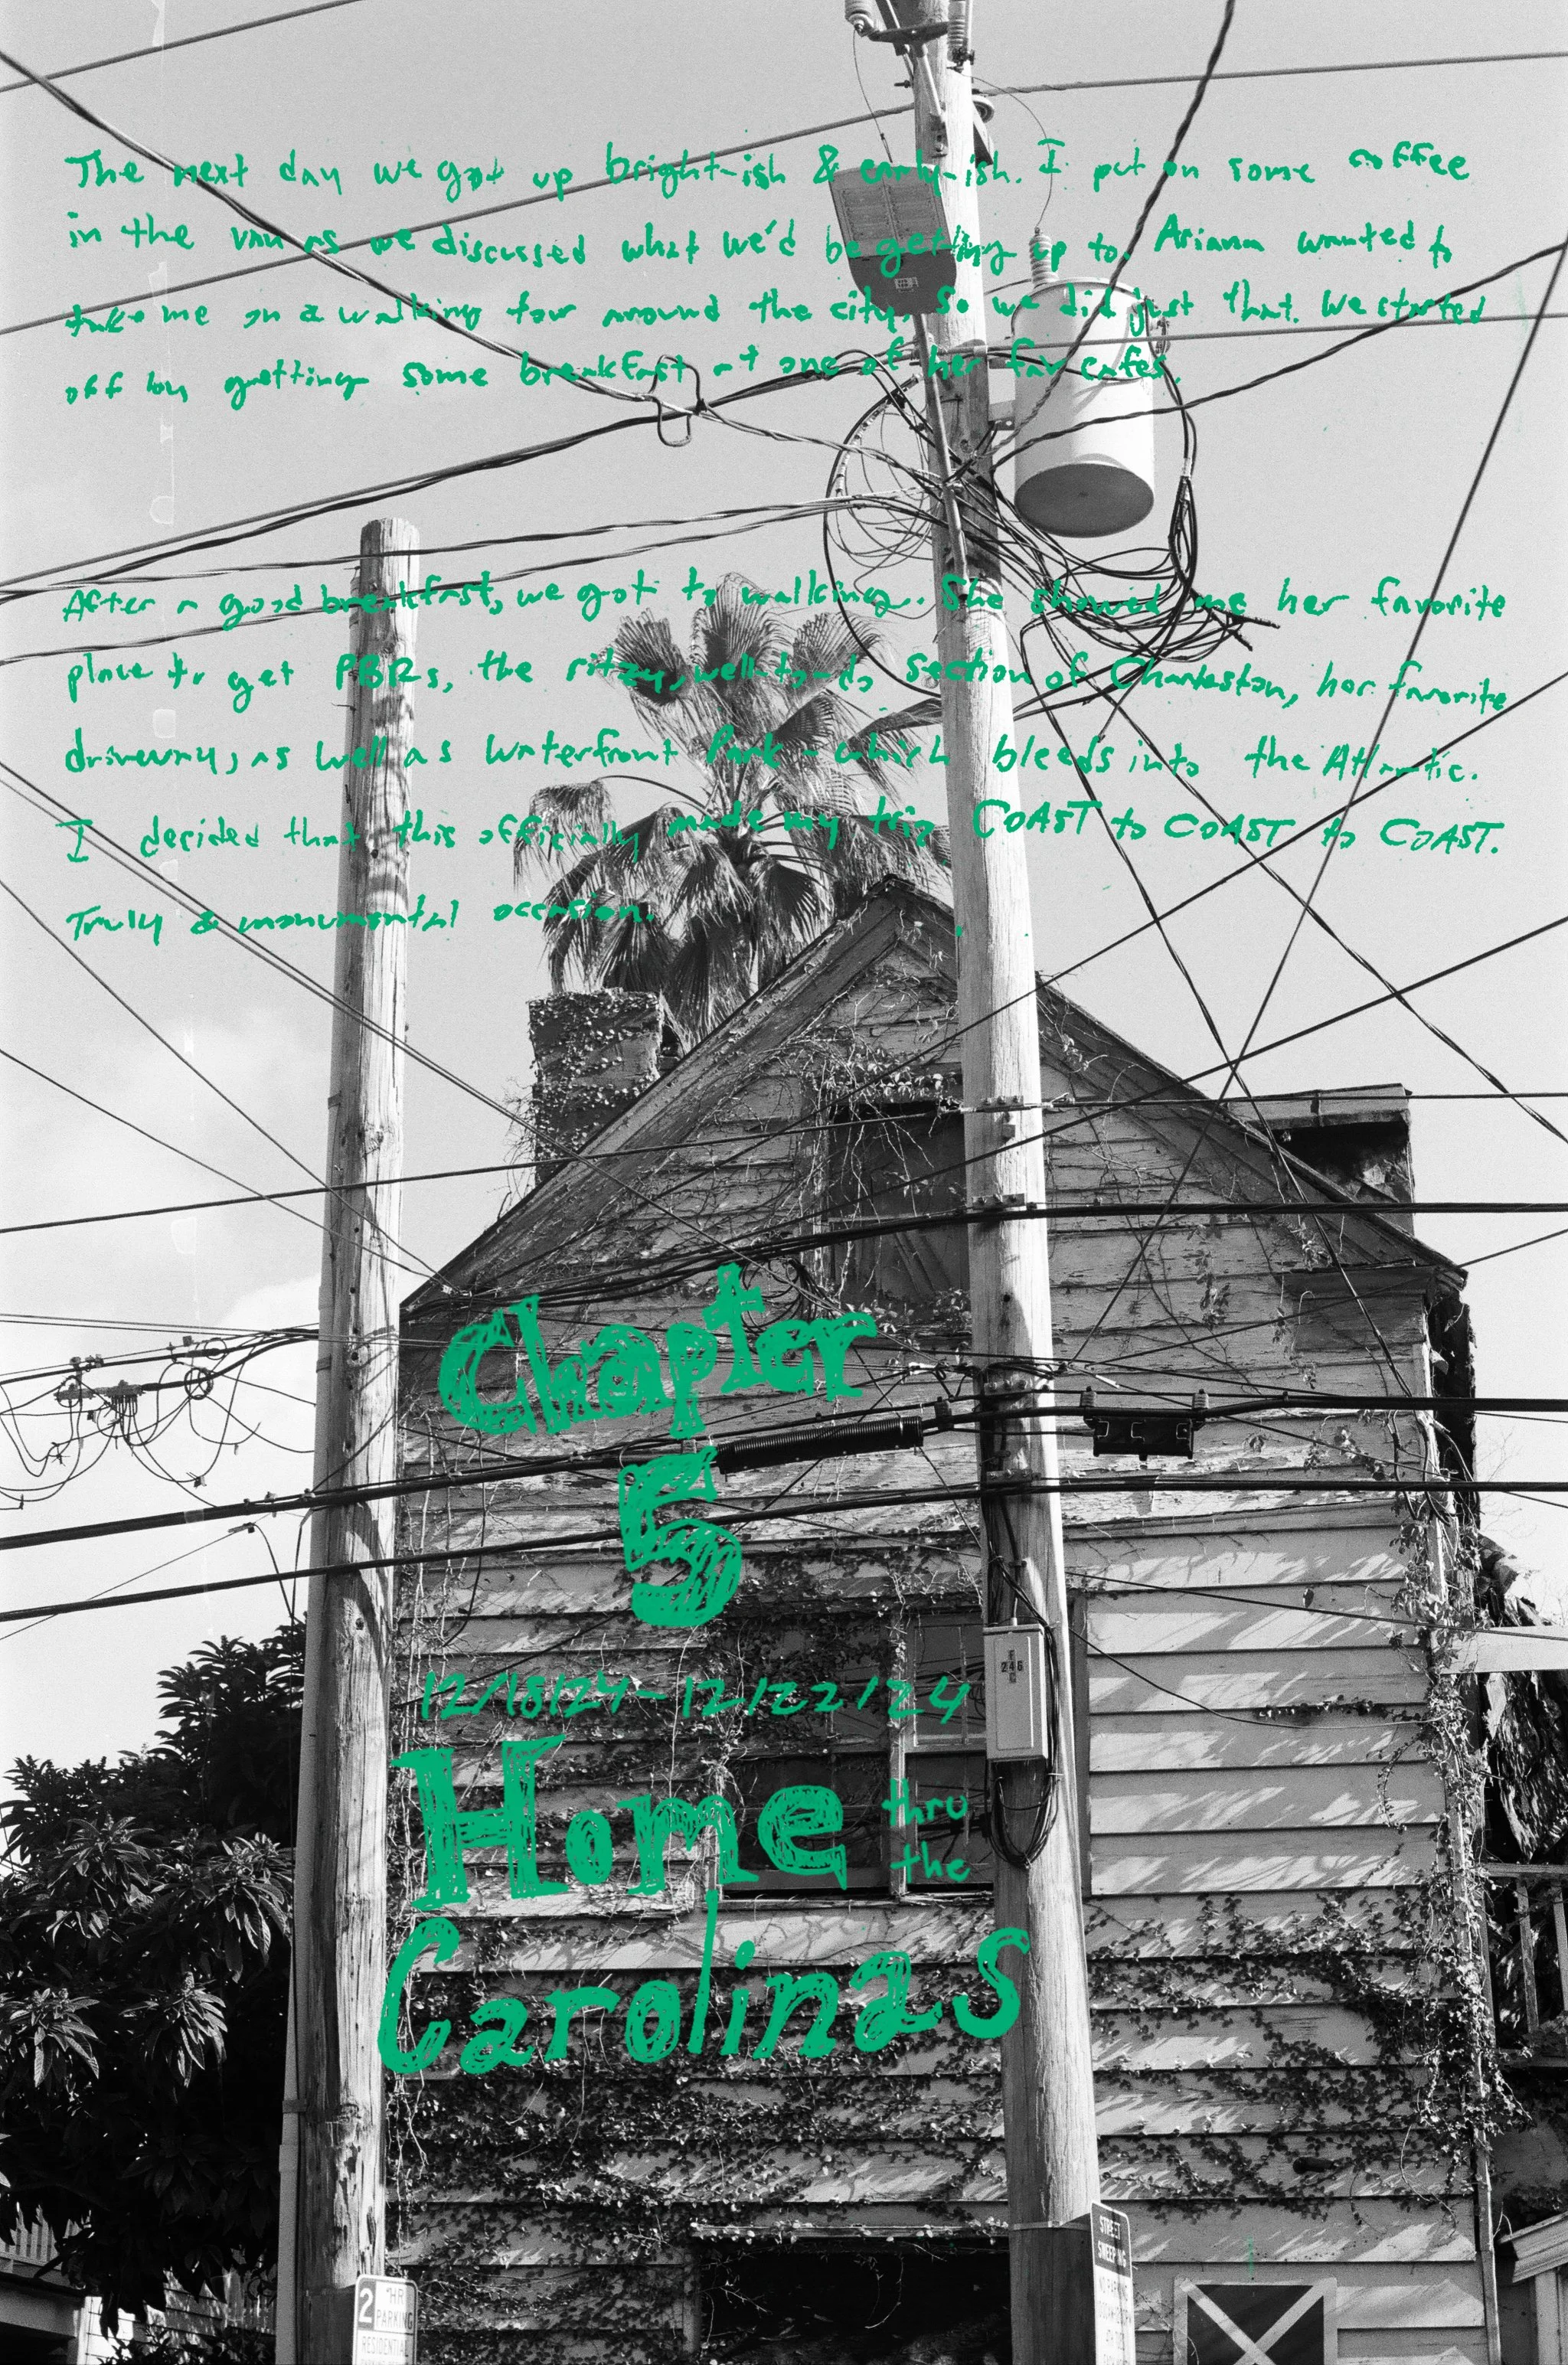 The next day we got up bright-ish & early-ish. I put on some coffee
in the van as we discussed what we'd be getting up to. Ariana wanted to
take me on a walking tour around the city, so we did just that. We started
off by getting some breakfast at one of her fav cafes.
After a good breakfast, we got to walking. She showed me her favorite
place to get PBRs, the ritzy, well-to-do section of Charleston, her favorite
driveway, as well as Waterfront Park - which bleeds into the Atlantic.
I decided that this officially made my trip COAST to COAST to COAST.
Truly a monumental occasion.
Chapter
5
12/18/24-12/22/24
Home thru
the
Carolinas
246
STREET
SWEEPING
NO PARKING
2 HR
PARKING
RESIDENTIAL